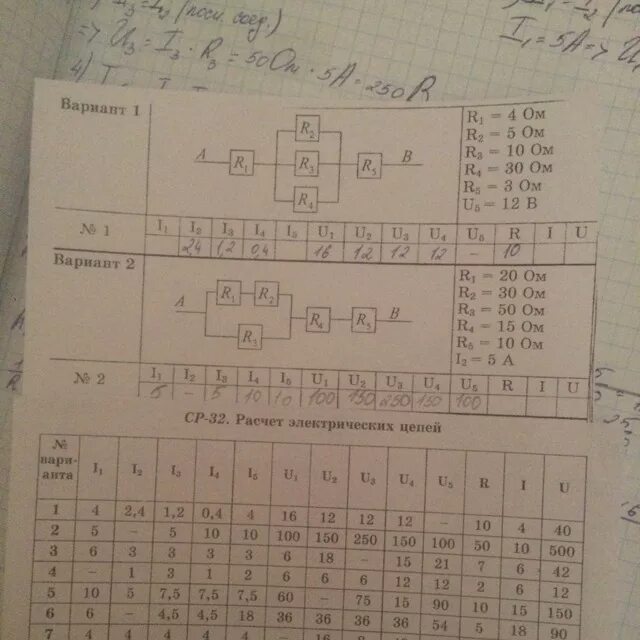 3) I₃ = I₂ (посл. соед.)
I₁ = 5A =>
=> U₃ = I₃ · R₃ = 50Ом · 5A = 250
4)
Вариант 1
A R₁ R₂ R₃ R₄ R₅ B
R₁ = 4 Ом
R₂ = 5 Ом
R₃ = 10 Ом
R₄ = 30 Ом
R₅ = 3 Ом
U₅ = 12 В
№ 1 I₁ I₂ I₃ I₄ I₅ U₁ U₂ U₃ U₄ U₅ R I U
24 1,2 0,4 16 12 12 12 – 10
Вариант 2
A R₁ R₂ R₃ R₄ R₅ B
R₁ = 20 Ом
R₂ = 30 Ом
R₃ = 50 Ом
R₄ = 15 Ом
R₅ = 10 Ом
I₂ = 5 А
№ 2 I₁ I₂ I₃ I₄ I₅ U₁ U₂ U₃ U₄ U₅ R I U
5 – 5 10 10 100 150 250 150 100
СР-32. Расчет электрических цепей
№ вари-анта I₁ I₂ I₃ I₄ I₅ U₁ U₂ U₃ U₄ U₅ R I U
1 4 2,4 1,2 0,4 4 16 12 12 12 – 10 4 40
2 5 – 5 10 10 100 150 250 150 100 50 10 500
3 6 3 3 3 3 6 18 – 15 21 7 6 42
4 – 1 3 1 2 6 6 6 12 12 2 6 12
5 10 5 7,5 7,5 7,5 60 – 75 15 90 10 15 150
6 6 – 4,5 4,5 18 36 36 36 36 54 5 18 90
7 4 4 4 4